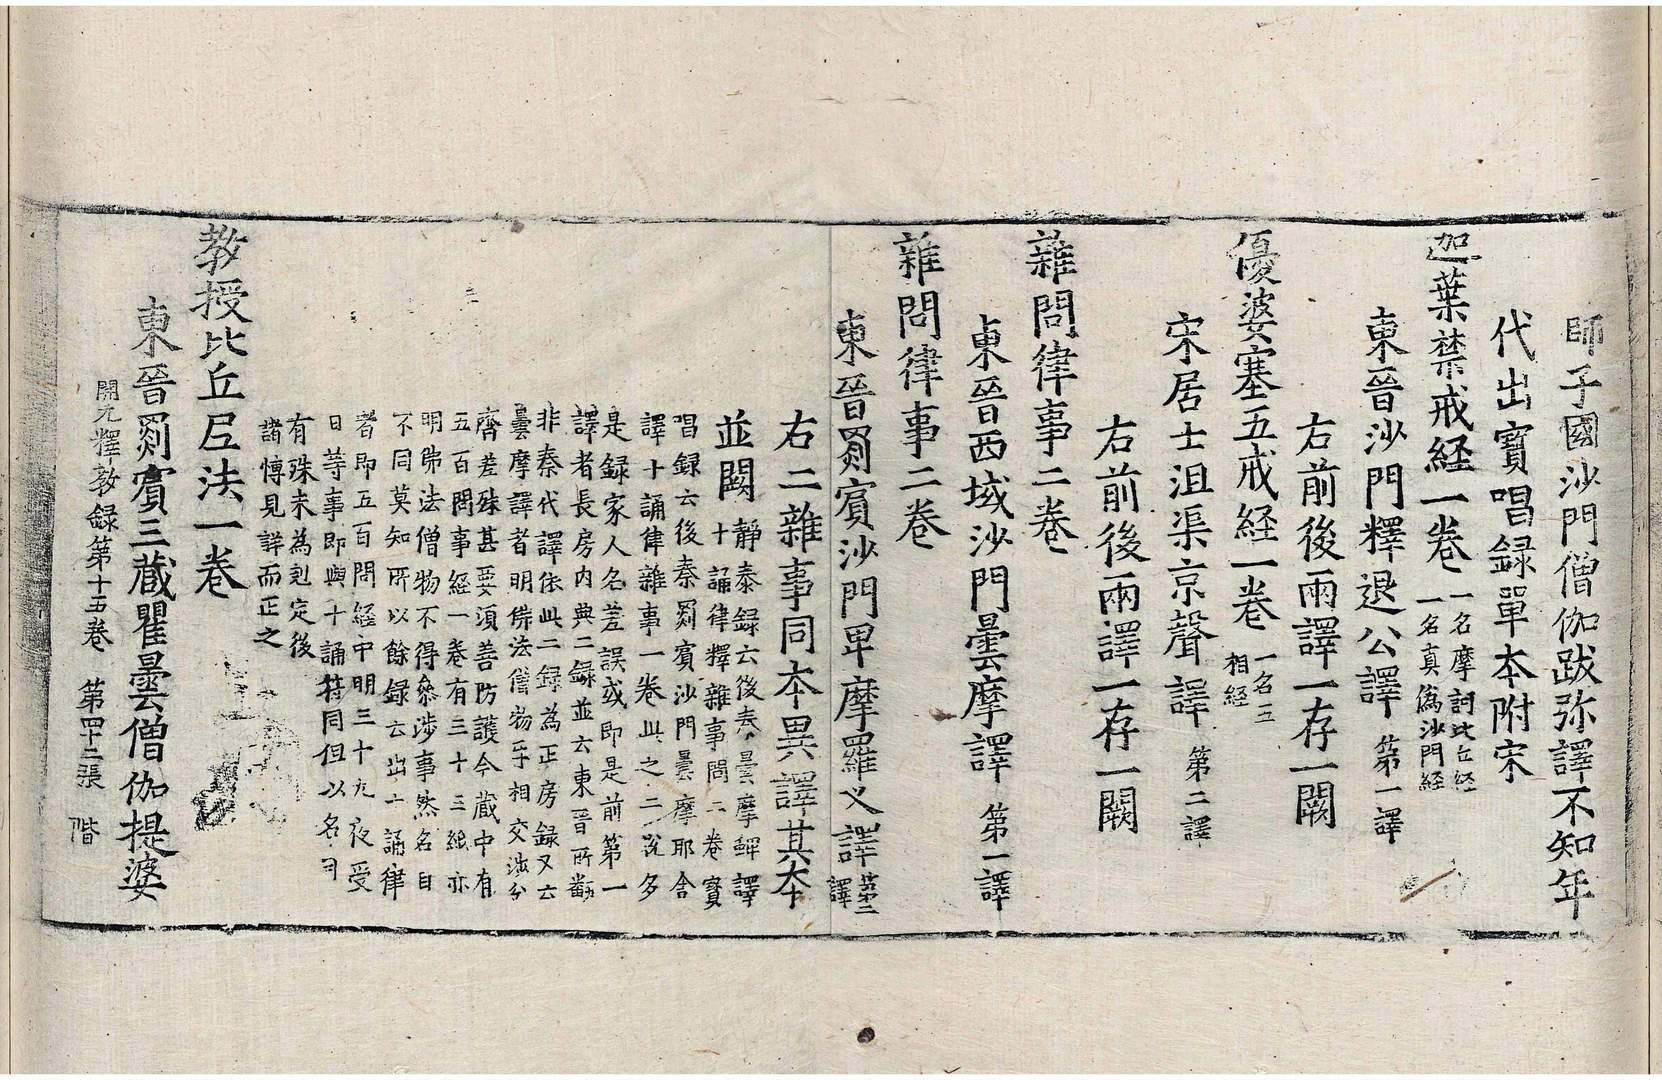 師子國沙門僧伽跋弥譯不知年
代出寳唱録單本附宋
迦葉禁戒経一巻
一名摩訶比丘経
一名真僞沙門経
東晉沙門釋退公譯 第一譯
右前後兩譯一存一闕
優婆塞五戒経一巻
一名五
相経
宋居士沮渠京聲譯 第二譯
右前後兩譯一存一闕
雜問律事二巻
東晉西域沙門曇摩譯 第一譯
雜問律事二巻
東晉罽賓沙門卑摩羅义譯
第二
譯
右二雜事同本異譯其本
並闕
靜泰録云後秦曇摩蜱譯
十誦律釋雜事問二巻寳
唱録云後秦罽賓沙門曇摩耶舎
譯十誦律雜事一巻此之二説多
是録家人名差誤或即是前第一
譯者長房内典二録並云東晉所飜
非秦代譯依此二録為正房録又云
曇摩譯者明佛法僧物乎相交渉分
齊差殊甚要須善防護今蔵中有
五百問事経一巻有三十三紙亦
明佛法僧物不得叅渉事然名目
不同莫知所以餘録云出十誦律
者即五百問経中明三十九夜受
日等事即與十誦符同但以名目
有殊未為剋定後
諸博見詳而正之
教授比丘尼法一巻
東晉罽賓三蔵瞿曇僧伽提婆
開元釋教録第十五巻 第四十二張 階